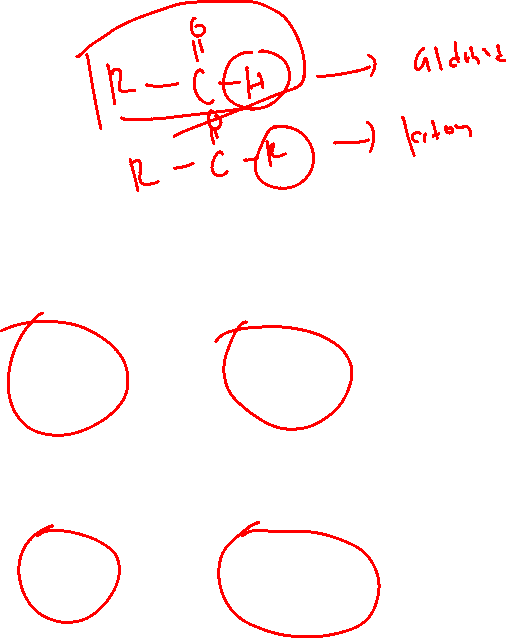 O
R - C - H → aldehid
O
R - C - R → keton